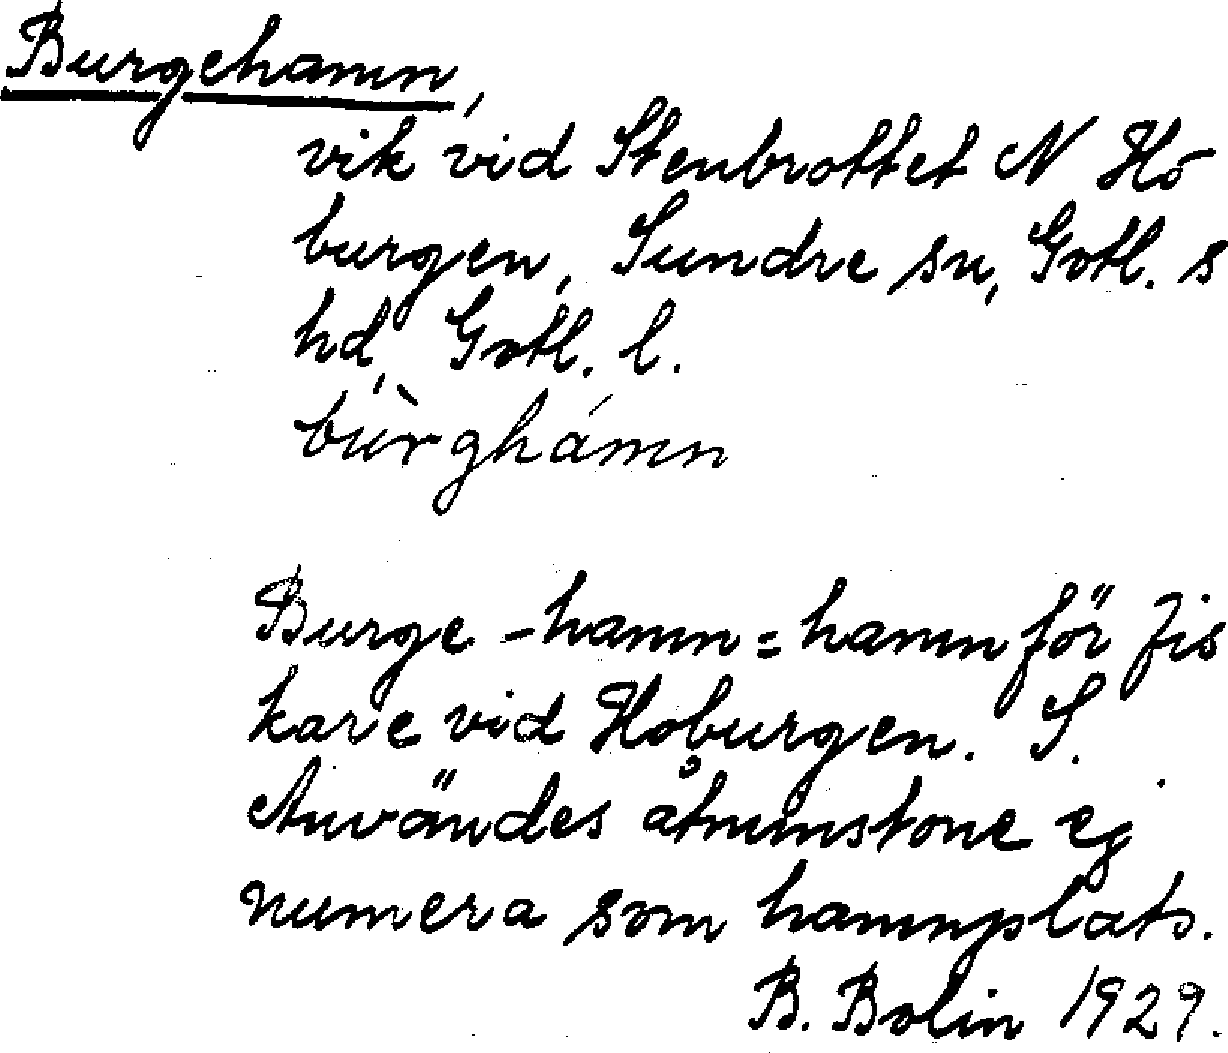 Burgehamn,
vik vid Stenbrottet N Ho
burgen, Sundre sn, Gotl. s
hd, Gotl. l.
bùrghámn
Burge - hamn = hamn för fis
kare vid Hoburgen. S.
Användes åtminstone ej
numera som hamnplats.
B. Bolin 1929.